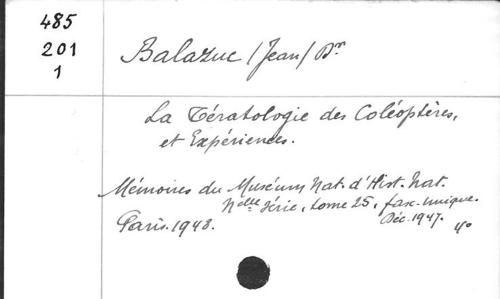 485
201
1
Balazuc /Jean/ Dr
La Tératologie des Coléoptères,
et Expériences.
Mémoires du Muséum Nat. d'Hist. Nat.
Nelle Série, tome 25, fasc. unique.
Paris. 1948. Déc. 1947. 4o